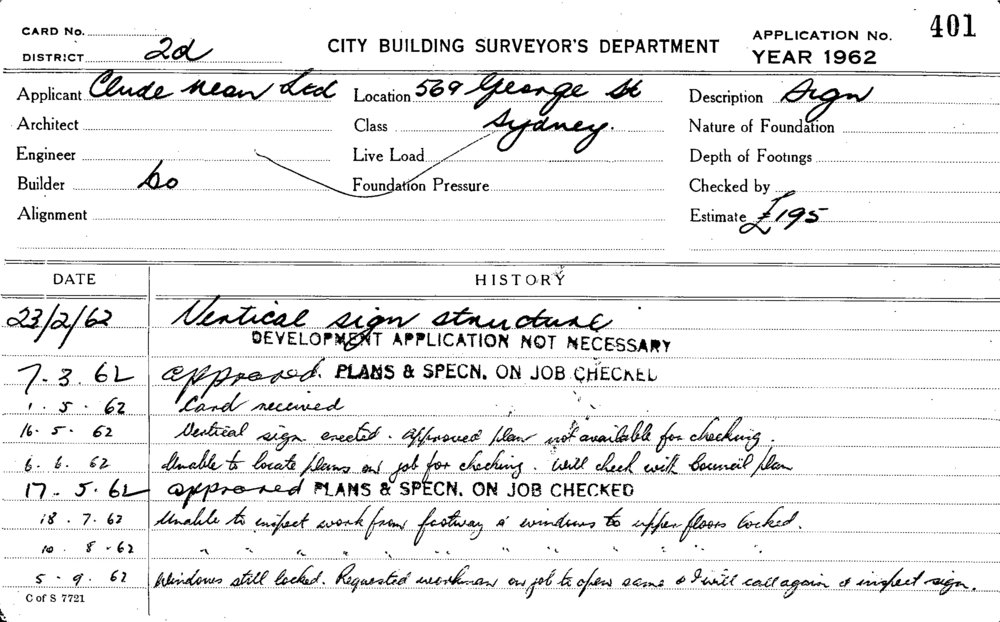 CARD No. 401
DISTRICT 2d CITY BUILDING SURVEYOR'S DEPARTMENT APPLICATION No. YEAR 1962
Applicant Clude Neon Ltd Location 569 George St Description Sign
Architect Class Sydney. Nature of Foundation
Engineer Live Load Depth of Footings
Builder Do Foundation Pressure Checked by
Alignment Estimate £195
DATE HISTORY
23/2/62 Vertical sign structure
DEVELOPMENT APPLICATION NOT NECESSARY
7.3.62 approved. PLANS & SPECN. ON JOB CHECKED
1.5.62 Card received
16.5.62 Vertical sign erected. Approved plan not available for checking.
6.6.62 Unable to locate plans on job for checking. Will check with Council plan
17.5.62 approved PLANS & SPECN. ON JOB CHECKED
18.7.62 Unable to inspect work from footway & windows to upper floors locked.
10.8.62 " " " " " " " " " " "
5.9.62 Windows still locked. Requested workman on job to open same & I will call again & inspect sign.
C of S 7721